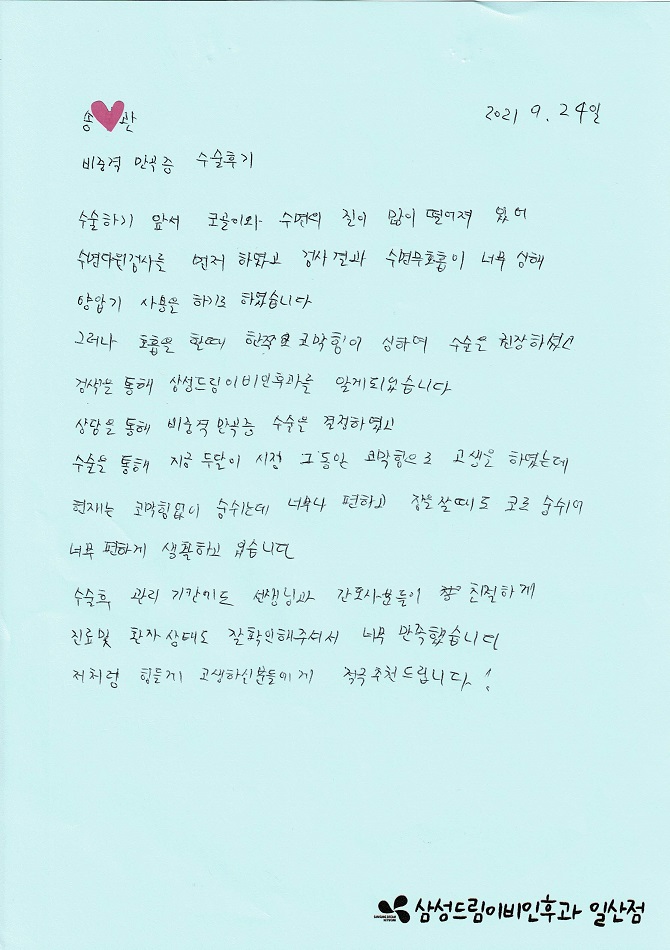 송 관
2021 9. 24일
비중격 만곡증 수술후기
수술하기 앞서 코골이와 수면의 질이 많이 떨어져 있어
수면다원검사를 먼저 하였고 검사결과 수면무호흡이 너무 심해
양압기 사용은 하기로 하였습니다
그러나 호흡을 할때 한쪽으로 코막힘이 심하여 수술은 권장하셨고
검색을 통해 삼성드림이비인후과를 알게되었습니다
상담을 통해 비중격 만곡증 수술을 결정하였고
수술을 통해 지금 두달이 시점 그동안 코막힘으로 고생을 하였는데
현재는 코막힘없이 숨쉬는데 너무나 편하고 잠을 잘때도 코로 숨쉬어
너무 편하게 생활하고 있습니다
수술후 관리 기간에도 선생님과 간호사분들이 참 친절하게
진료및 환자상태도 잘확인해주셔서 너무 만족했습니다
저처럼 힘들게 고생하신분들에게 적극추천드립니다!
삼성드림이비인후과 일산점